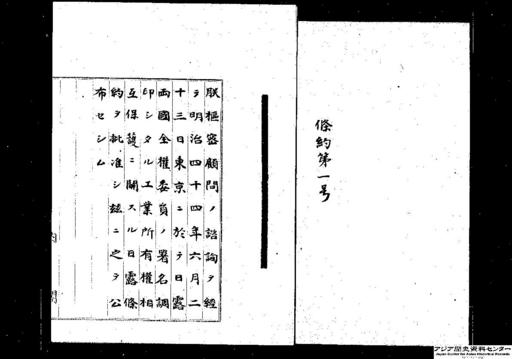 條約第一号
朕樞密顧問ノ諮詢ヲ經
テ明治四十四年六月二
十三日東京ニ於テ日露
兩國全權委員ノ署名調
印シタル工業所有權相
互保護ニ關スル日露條
約ヲ批准シ茲ニ之ヲ公
布セシム
内閣
アジア歴史資料センター
Japan Center for Asian Historical Records